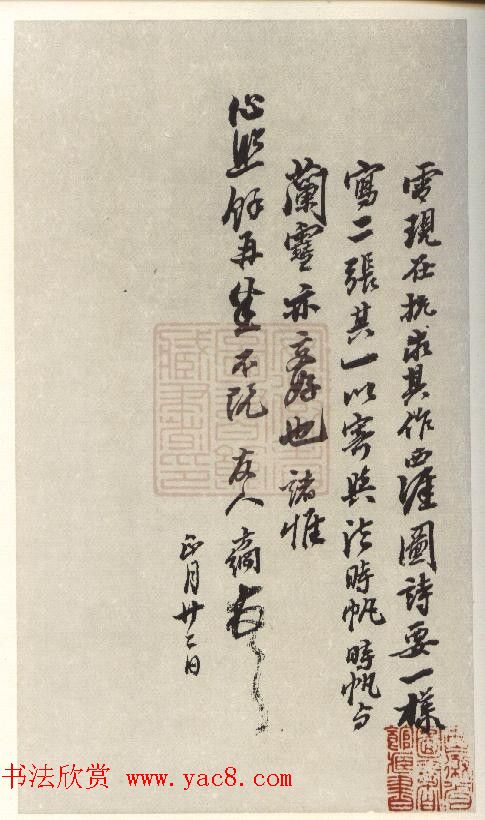 雪現在杭求其作西涯圖詩要一樣
寫二張其一以寄與法時帆時帆与
蘭雪亦交好也諸惟
心照餘再不既 友人
正月廿二日
书法欣赏 www.yac8.com